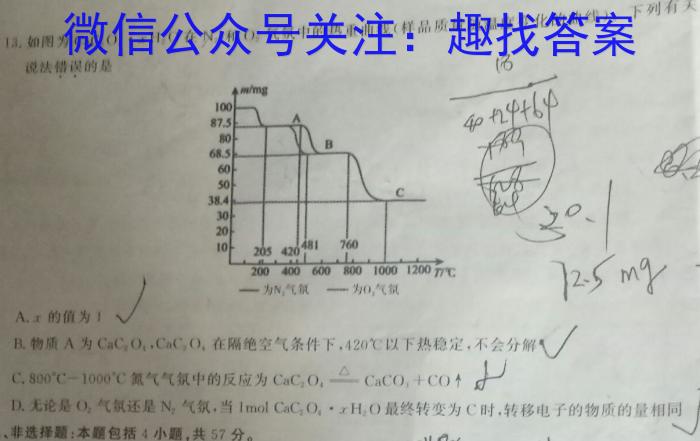 微信公众号关注：趣找答案
13. 如图为
下列有关
说法错误的是
m/mg
100
87.5
80
68.5
60
50
38.4
30
20
10
A
B
C
205 420 481 760
200 400 600 800 1000 1200 T/℃
——为N₂气氛 ——为O₂气氛
40+24+64
72.5 mg
A. x 的值为 1
B. 物质 A 为 CaC₂O₄, CaC₂O₄ 在隔绝空气条件下, 420℃以下热稳定, 不会分解
C. 800℃－1000℃氮气气氛中的反应为 CaC₂O₄ △ CaCO₃+CO↑
D. 无论是 O₂ 气氛还是 N₂ 气氛, 当 1mol CaC₂O₄·xH₂O 最终转变为 C 时, 转移电子的物质的量相同
、非选择题: 本题包括 4 小题, 共 57 分。